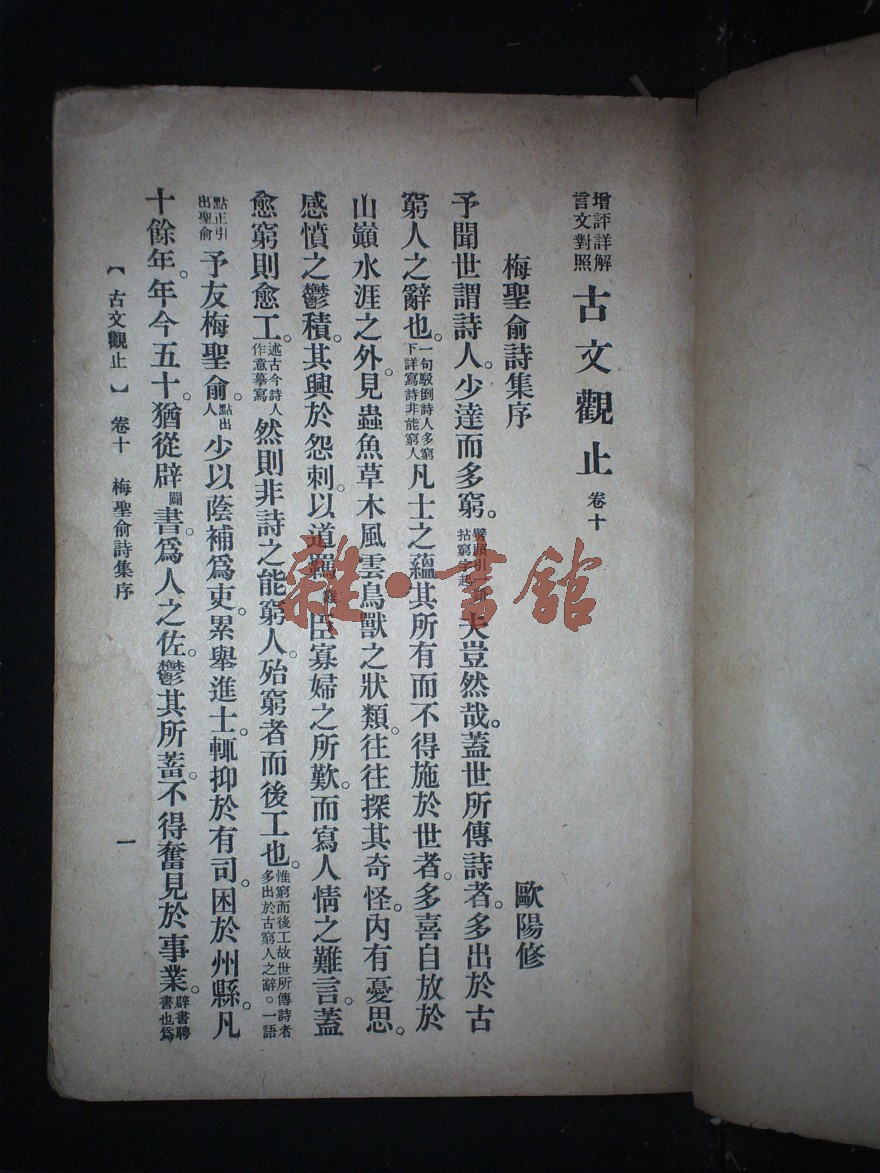 增評詳解
言文對照
古文觀止 卷十
梅聖俞詩集序
歐陽修
予聞世謂詩人。少達而多窮。劈頭引一語拈窮字起夫豈然哉。蓋世所傳詩者。多出於古
窮人之辭也。一句駁倒詩人多窮下詳寫詩非能窮人凡士之蘊其所有而不得施於世者。多喜自放於
山巓水涯之外。見蟲魚草木風雲鳥獸之狀類。往往探其奇怪。內有憂思。
感憤之鬱積。其興於怨刺。以道羈臣寡婦之所歎。而寫人情之難言。蓋
愈窮則愈工。述古今詩人作意摹寫然則非詩之能窮人。殆窮者而後工也。惟窮而後工故世所傳詩者多出於古窮人之辭。一語
點正引出聖俞予友梅聖俞。點出人少以蔭補爲吏。累舉進士。輒抑於有司。困於州縣。凡
十餘年。年今五十。猶從辟闢書。爲人之佐。鬱其所蓄。不得奮見於事業。辟書聘書也爲
【古文觀止】 卷十 梅聖俞詩集序
一
雜·書館